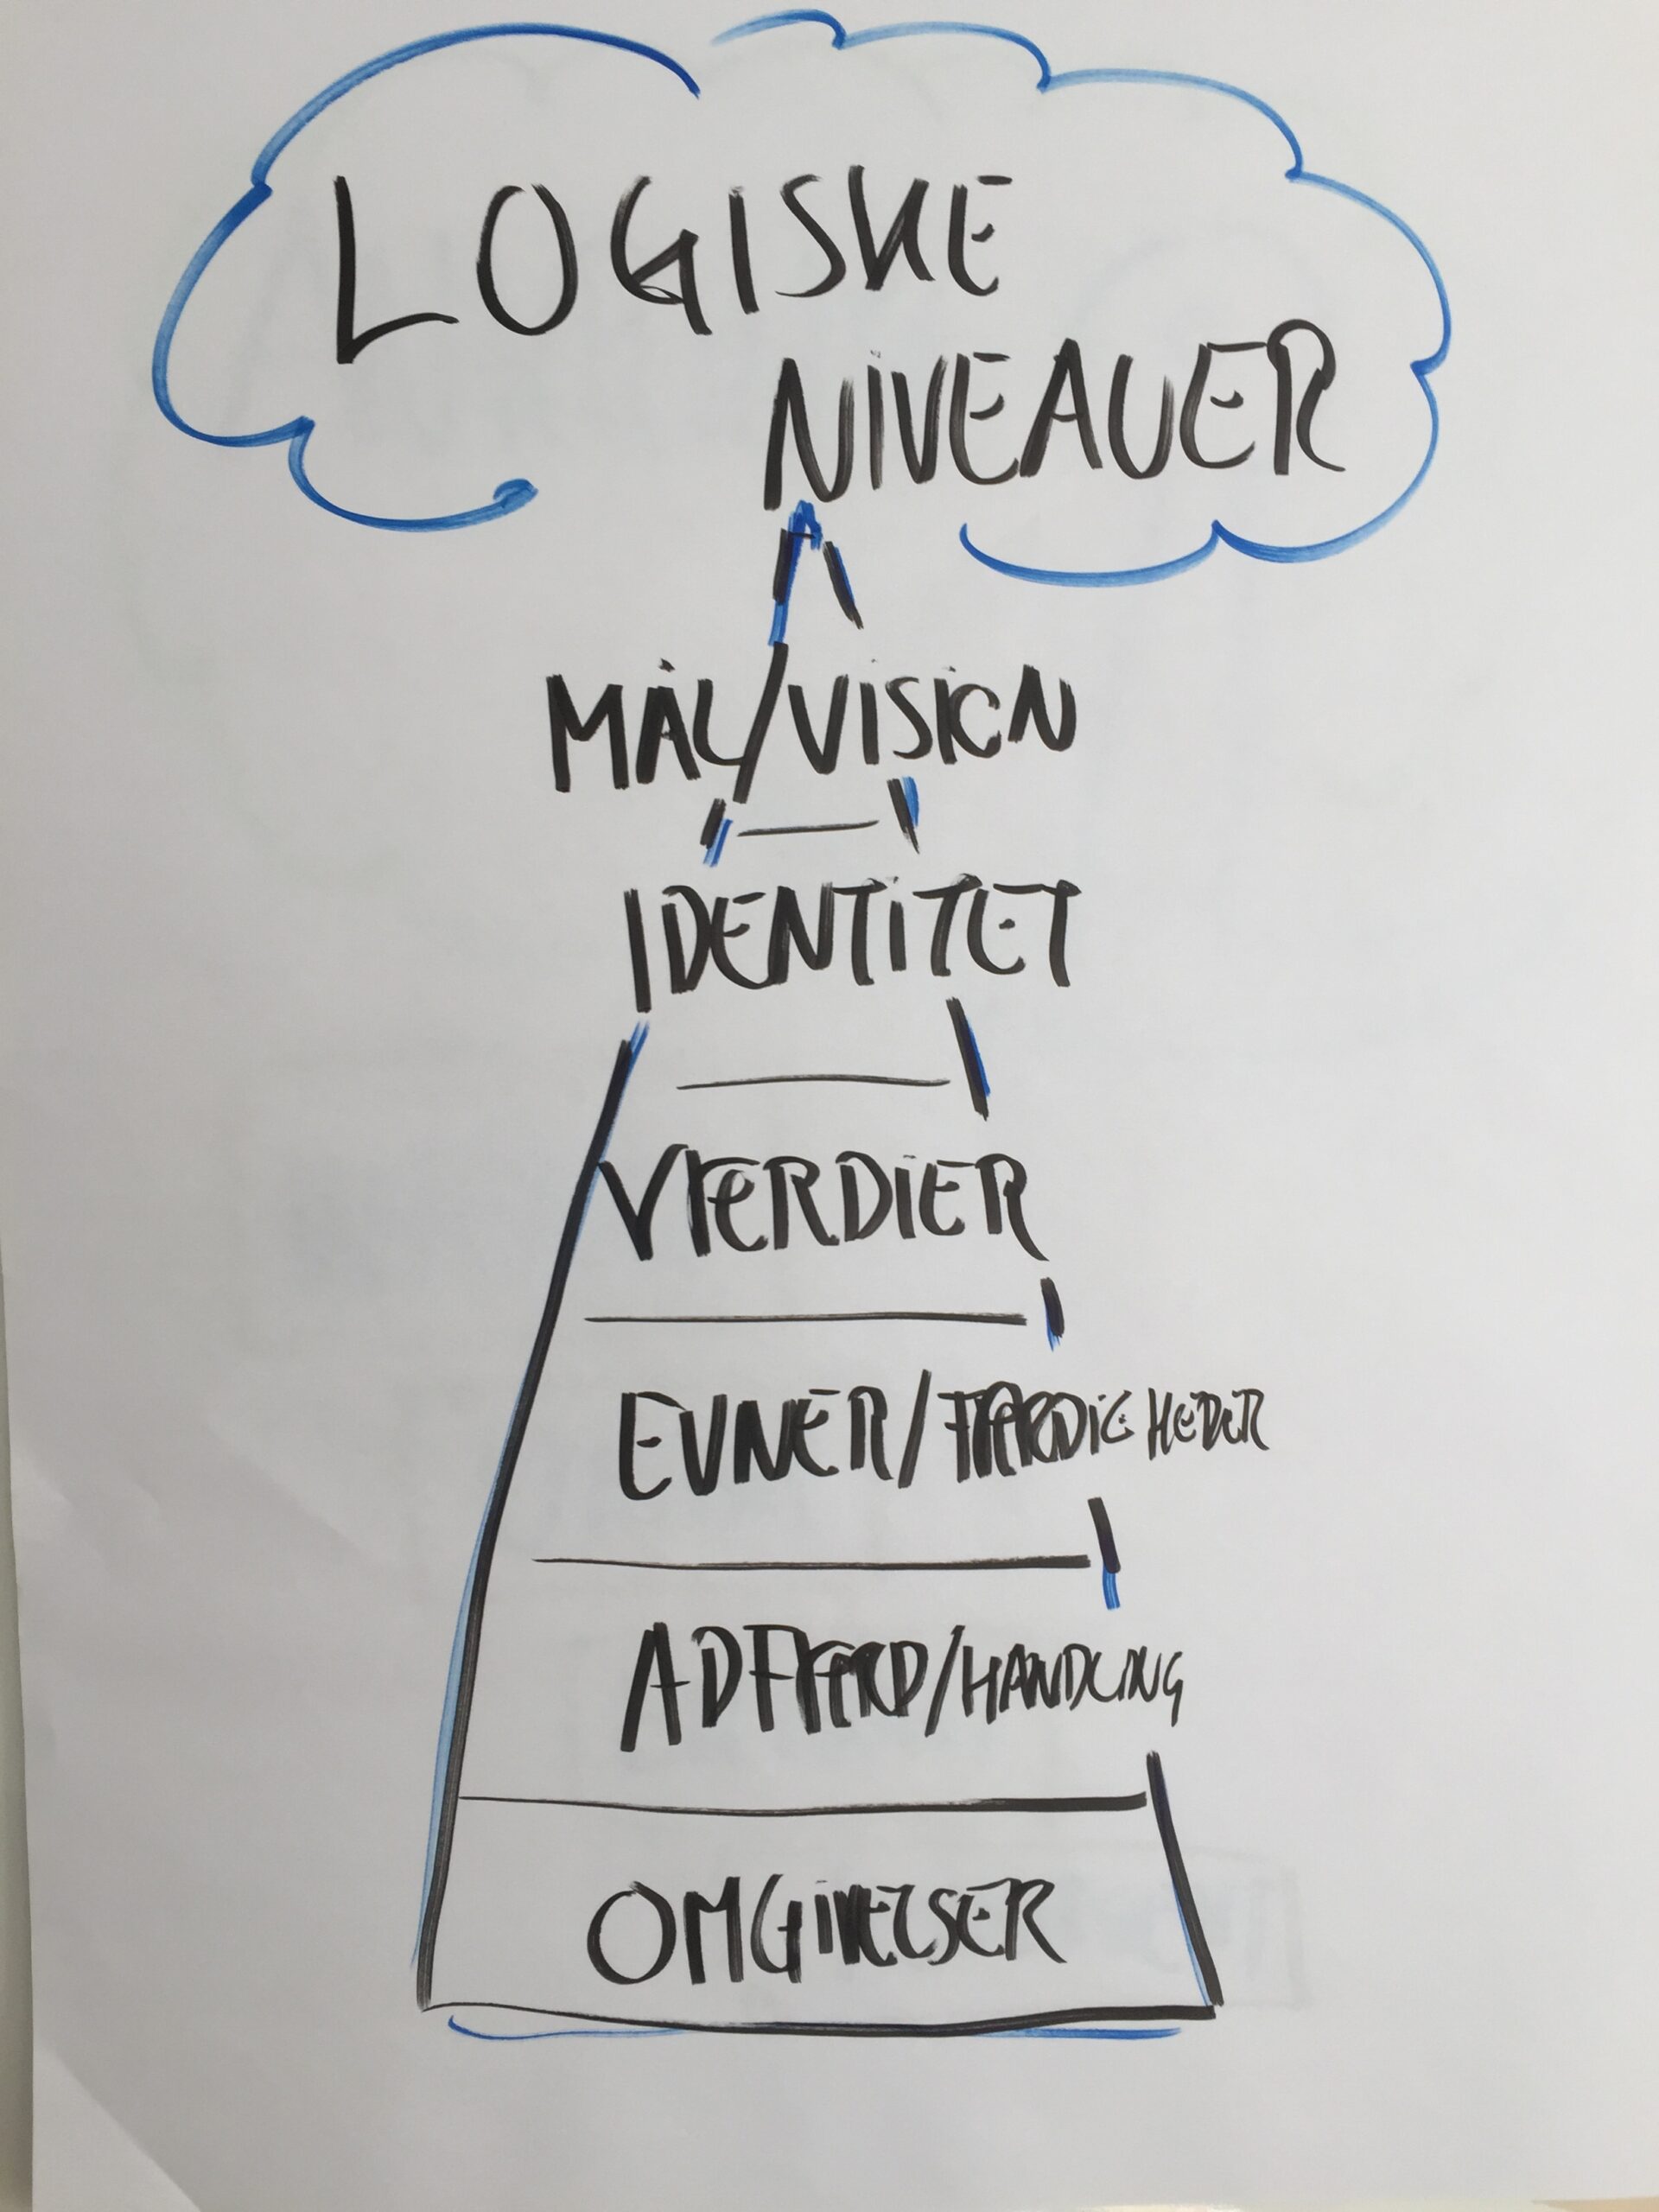 LOGISKE
NIVEAUER
MÅL/VISION
IDENTITET
VÆRDIER
EVNER/FÆRDIGHEDER
ADFÆRD/HANDLING
OMGIVELSER